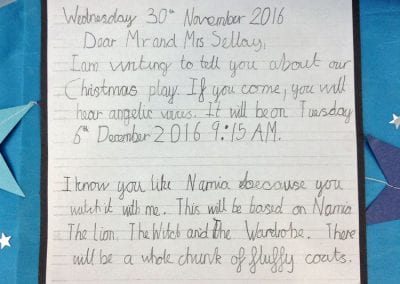 Wednesday 30th November 2016
Dear Mr and Mrs Sellay,
I am writing to tell you about our
Christmas play. If you come, you will
hear angelic voices. It will be on Tuesday
6th December 2016 9:15 AM.
I know you like Narnia because you
watch it with me. This will be based on Narnia
The Lion, The Witch and The Wardrobe. There
will be a whole chunk of fluffy coats.